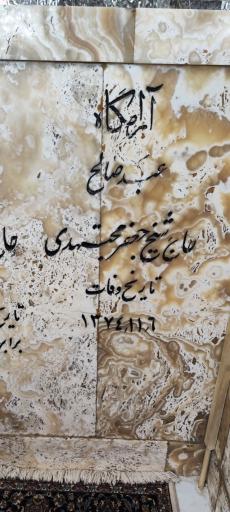 آرامگاه
عبد صالح
حاج شیخ جعفر مجتهدی
تاریخ وفات
۱۳۷۴،۱۱،۶
حاج